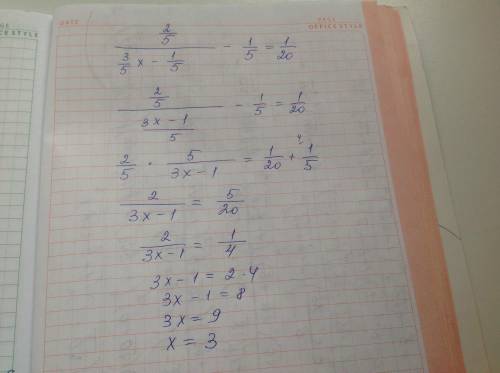 GE
ICE STYLE
DATE
PAGE
OFFICE STYLE
(2/5)/(3/5 x - 1/5) - 1/5 = 1/20
(2/5)/((3x - 1)/5) - 1/5 = 1/20
2/5 · 5/(3x - 1) = 1/20 + 1/5
2/(3x - 1) = 5/20
2/(3x - 1) = 1/4
3x - 1 = 2 · 4
3x - 1 = 8
3x = 9
x = 3